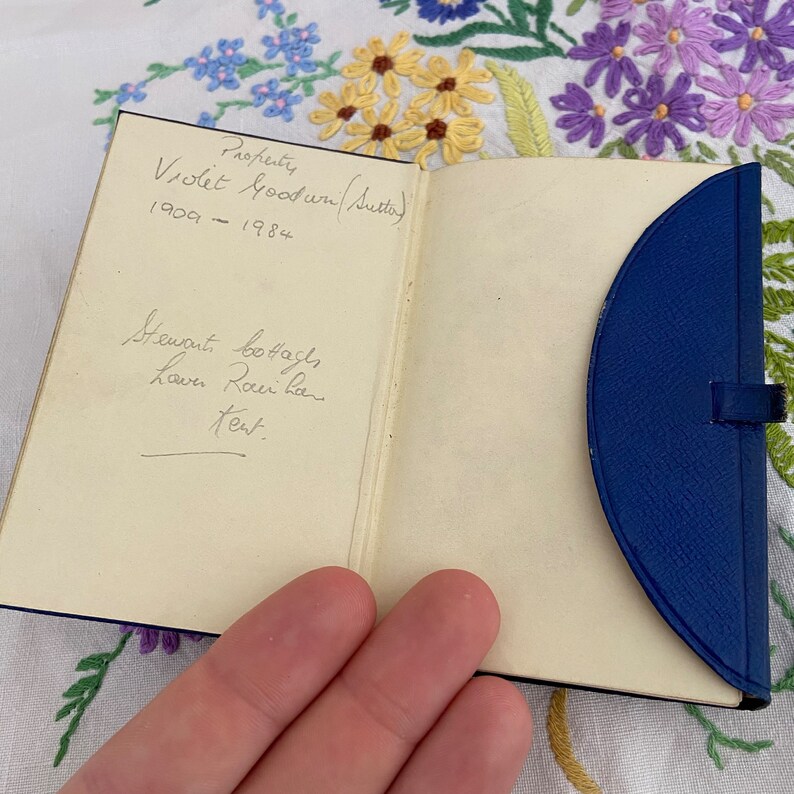 Property
Violet Goodwin (Sutton)
1909 - 1984
Stewarts Cottages
Lower Rainham
Kent.